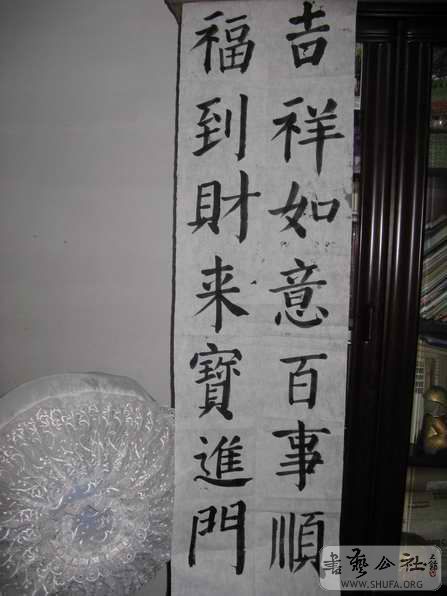 吉祥如意百事順
福到財来寶進門
書藝公社
WWW.SHUFA.ORG